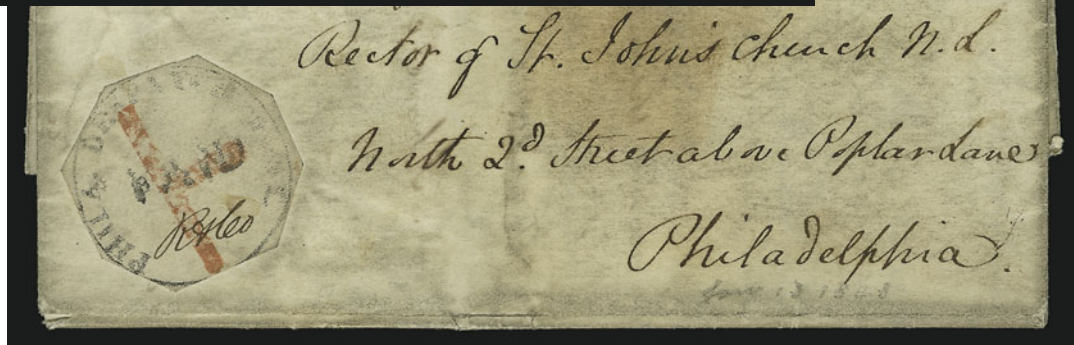 Rector of St. John's Church N. L.
North 2d. Street above Poplar Lane
Philadelphia.
PHILA DESPATCH POST
PAID
R & Co